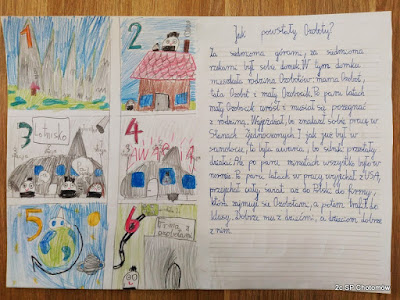 1
2
3
Lotnisko
4
5
6
Firma z
ozobotami
Jak powstały Ozoboty?
Za siedmioma górami, za siedmioma
rzekami był sobie domek. W tym domku
mieszkała rodzina Ozobotów: mama Ozobot,
tata Ozobot i mały Ozobocik. Po paru latach
mały Ozobocik urósł i musiał się pożegnać
z rodziną. Wyjechał, bo znalazł sobie pracę w
Stanach Zjednoczonych. I jak już był w
samolocie, to była awaria, bo silniki przestały
działać. Ale po paru minutach wszystko było w
normie. Po paru latach w pracy wyjechał z USA,
przejechał cały świat aż do Polski, do firmy,
która zajmuje się Ozobotami, a potem trafił do
klasy. Dobrze mu z dziećmi, a dzieciom dobrze
z nim.
2d SP Chotomów